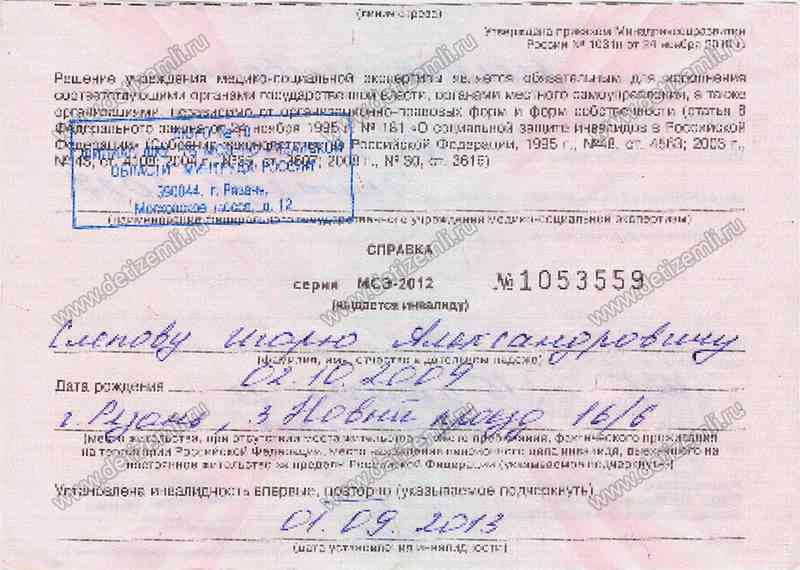 (линия отреза)
Утверждена приказом Минздравсоцразвития
России № 1031н от 24 ноября 2010 г.
Решение учреждения медико-социальной экспертизы является обязательным для исполнения
соответствующими органами государственной власти, органами местного самоуправления, а также
организациями независимо от организационно-правовых форм и форм собственности (статья 8
Федерального закона от 24 ноября 1995 г. № 181 «О социальной защите инвалидов в Российской
Федерации» (Собрание законодательства Российской Федерации, 1995 г., №48, ст. 4563; 2003 г.,
№ 43, ст. 4108; 2004 г., №35, ст. 3607; 2008 г., № 30, ст. 3616)
ОБЛАСТИ МИНТРУДА РОССИИ
390044, г. Рязань,
Московское шоссе, д. 12
(наименование федерального государственного учреждения медико-социальной экспертизы)
СПРАВКА
серия МСЭ-2012 №1053559
(выдается инвалиду)
Слепову Игорю Александровичу
(фамилия, имя, отчество в дательном падеже)
Дата рождения 02.10.2009
г. Рязань, 3 Новый проезд 16/6
(место жительства, при отсутствии места жительства - место пребывания, фактического проживания
на территории Российской Федерации, место нахождения пенсионного дела инвалида, выехавшего на
постоянное жительство за пределы Российской Федерации (указываемое подчеркнуть))
Установлена инвалидность впервые, повторно (указываемое подчеркнуть)
01.09.2013
(дата установления инвалидности)
www.detizemli.ru